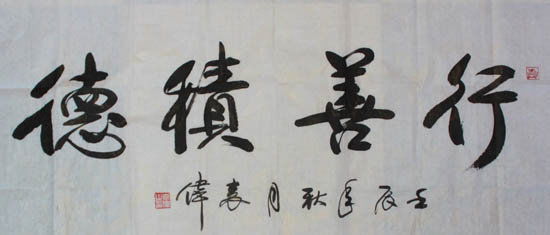 行善積德
壬辰年秋月袁偉